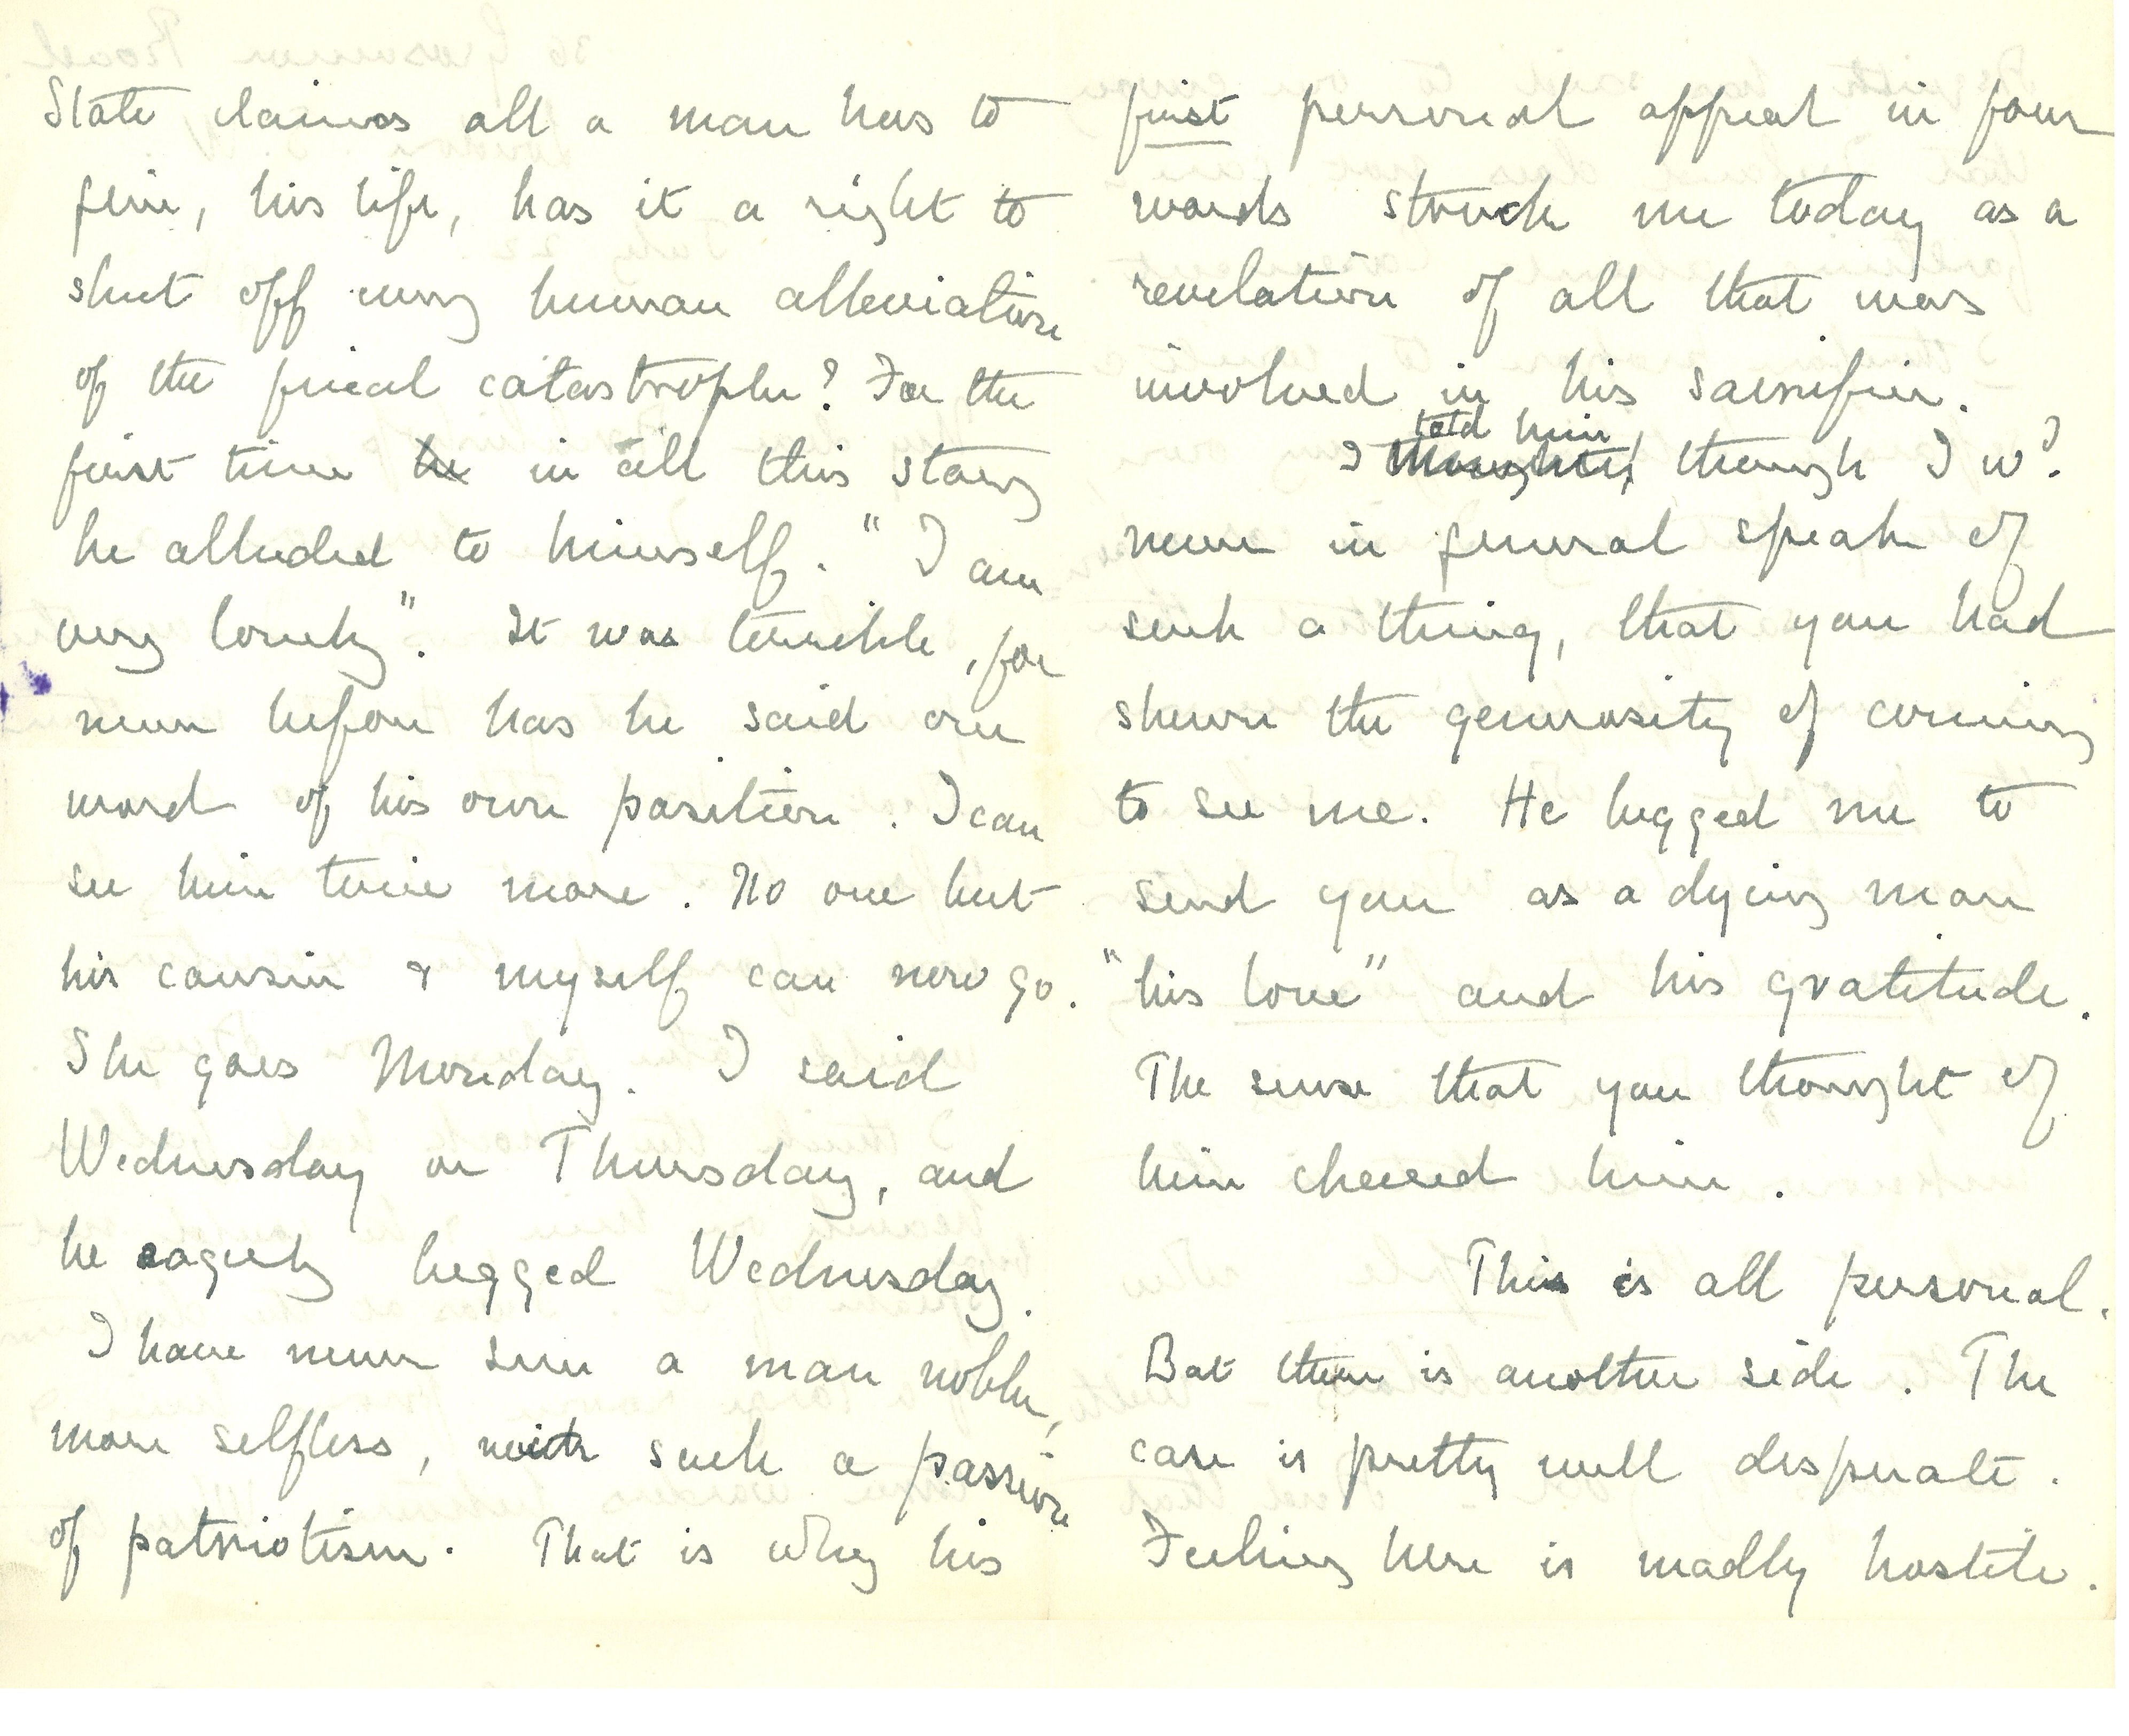 State claims all a man has to
give, his life, has it a right to
shut off every human alleviation
of the final catastrophe? For the
first time he in all this story
he alluded to himself. "I am
very lonely". It was terrible, for
never before has he said one
word of his own position. I can
see him twice more. No one but
his cousin & myself can now go.
She goes Monday. I said
Wednesday or Thursday, and
he eagerly begged Wednesday.
I have never seen a man nobler,
more selfless, with such a passion
of patriotism. That is why his
first personal appeal in four
words struck me today as a
revelation of all that was
involved in his sacrifice.
told him
I thought, though I wd.
never in general speak of
such a thing, that you had
shewn the generosity of coming
to see me. He begged me to
send you as a dying man
"his love" and his gratitude.
The sense that you thought of
him cheered him.
This is all personal.
But there is another side. The
case is pretty well desperate.
Feeling here is madly hostile.